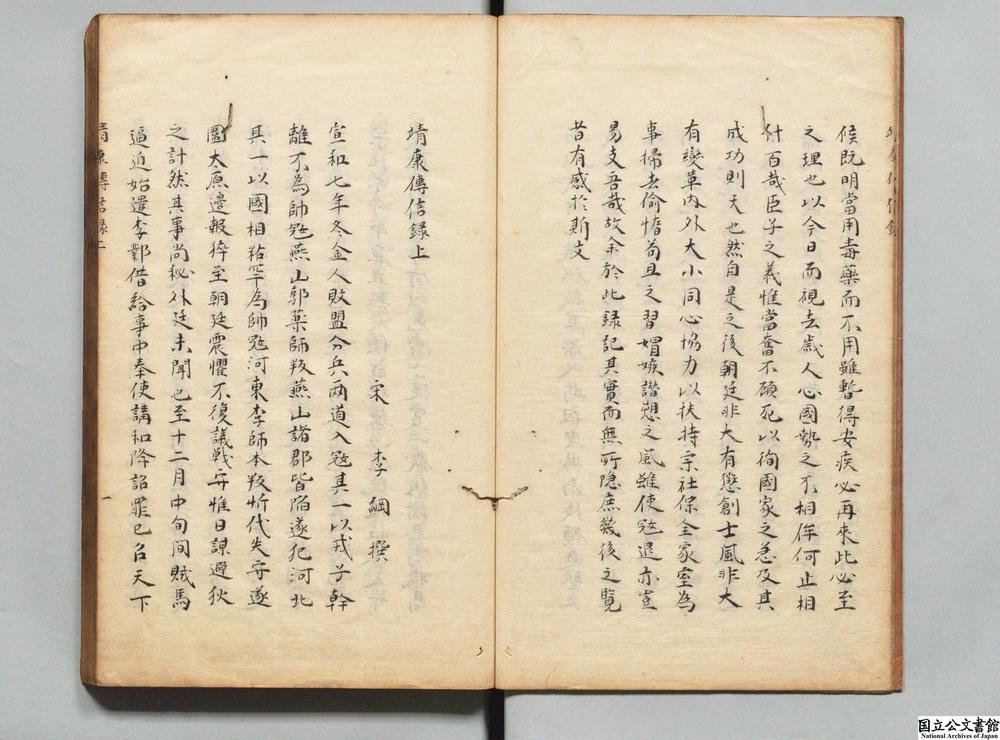 候既明當用毒藥而不用雖暫得安疾必再來此必至
之理也以今日而視去歲人心國勢之不相侔何止相
什百哉臣子之義惟當奮不顧死以徇國家之急及其
成功則天也然自是之後朝廷非大有懲創士風非大
有變革內外大小同心協力以扶持宗社保全家室為
事掃去偷惰苟且之習媢嫉譖愬之風雖使寇退亦豈
易支吾哉故余於此録記其實而無所隐庶幾後之覽
者有感於斯文
靖康傳信録上
宋 李綱 撰
宣和七年冬金人敗盟分兵兩道入寇其一以戎子幹
離不為帥寇燕山郭藥師叛燕山諸郡皆陷遂犯河北
其一以國相粘罕為帥寇河東李師本叛忻代失守遂
圍太原邊報狎至朝廷震懼不復議戰守惟日謀避狄
之計然其事尚秘外廷未聞也至十二月中旬間賊馬
逼近始遣李鄴借給事中奉使講和降詔罪已召天下
靖康傳信録上
一
国立公文書館
National Archives of Japan